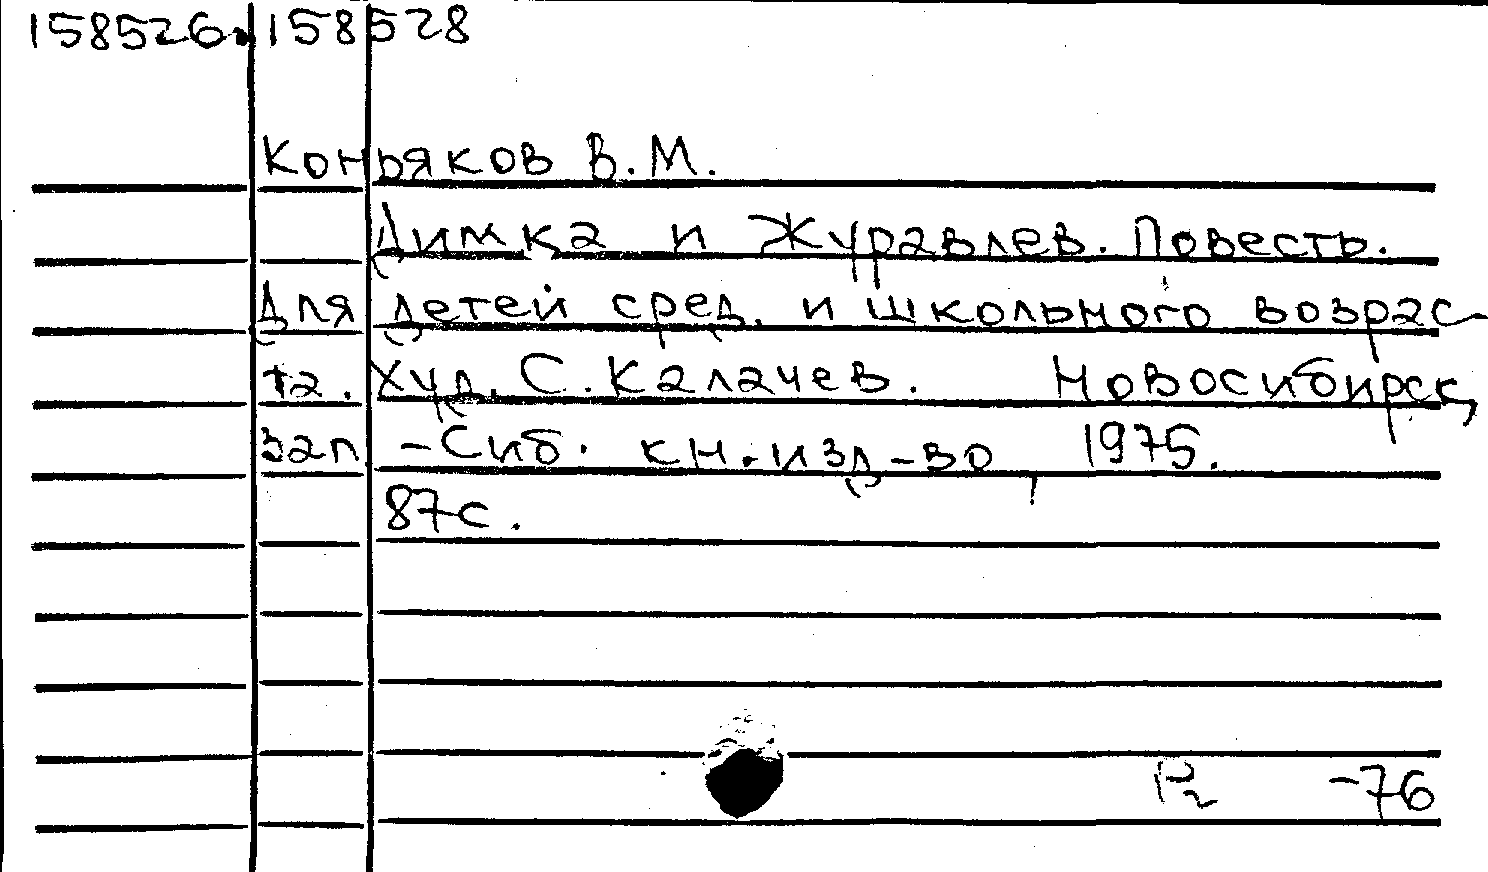 158526. 158528
Коньяков В.М.
Димка и Журавлев. Повесть.
Для детей сред. и школьного возрас-
та. Худ. С. Калачев. Новосибирск,
Зап-Сиб. кн. изд-во, 1975.
87с.
Р2 -76